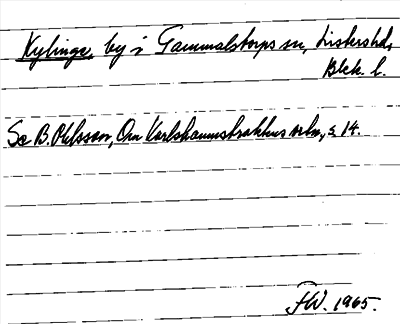 Kylinge, by i Gammalstorps sn, Listers hd,
Blek. l.
Se B. Ohlsson, Om Karlshamnstraktens ortn., s. 14.
FW. 1965.